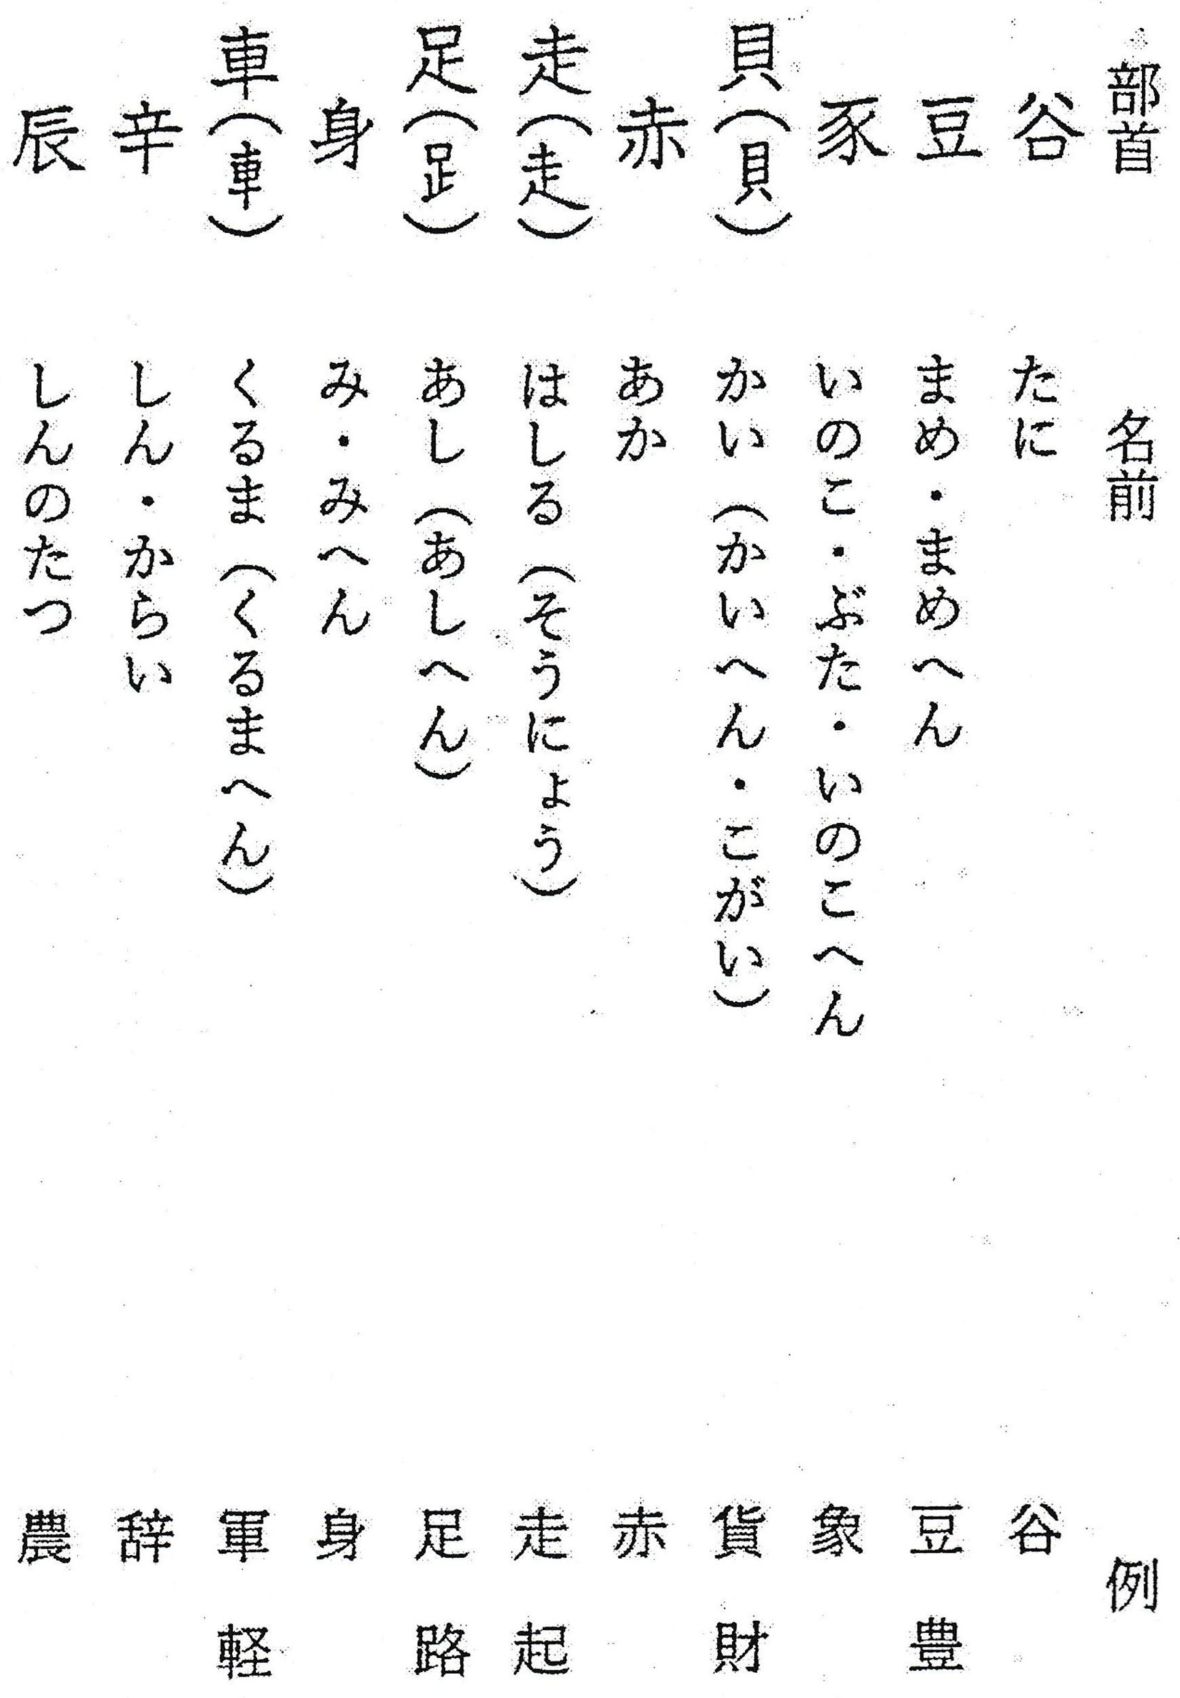 部首 名前 例
谷 たに 谷
豆 まめ・まめへん 豆 豊
豕 いのこ・ぶた・いのこへん 象
貝(貝) かい(かいへん・こがい) 貨 財
赤 あか 赤
走(走) はしる(そうにょう) 走 起
足(𧾷) あし(あしへん) 足 路
身 み・みへん 身
車(車) くるま(くるまへん) 軍 軽
辛 しん・からい 辞
辰 しんのたつ 農